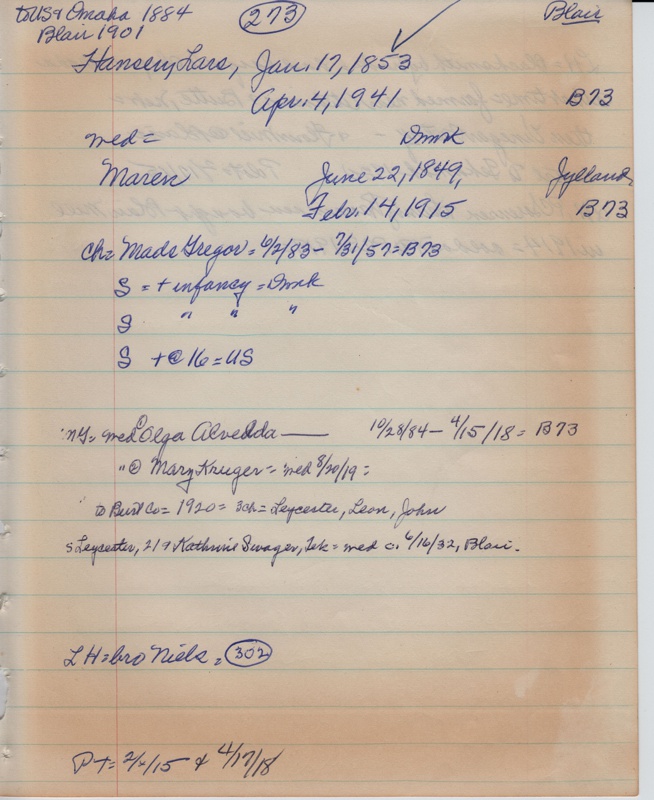 to US & Omaha 1884 273 Blair
Blair 1901
Hansen, Lars, Jan. 17, 1853
Apr. 4, 1941 B73
med = Dmrk
Maren June 22, 1849, Jylland
Febr. 14, 1915 B73
ch = Mads Gregor = 6/2/83 - 7/31/57 = B73
S = + infancy = Dmrk
S " " "
S + @ 16 = US
= med Olga Alvedda — 10/28/84 - 4/15/18 = B73
" @ Mary Kruger = med 8/20/19 =
to Burt Co = 1920 = 3ch = Leycester, Leon, John
s Leycester, 21 & Kathrine Swager, Tek = med c. 6/16/32, Blair.
L H = bro Niels = 302
P T = 2/ /15 & 4/17/18